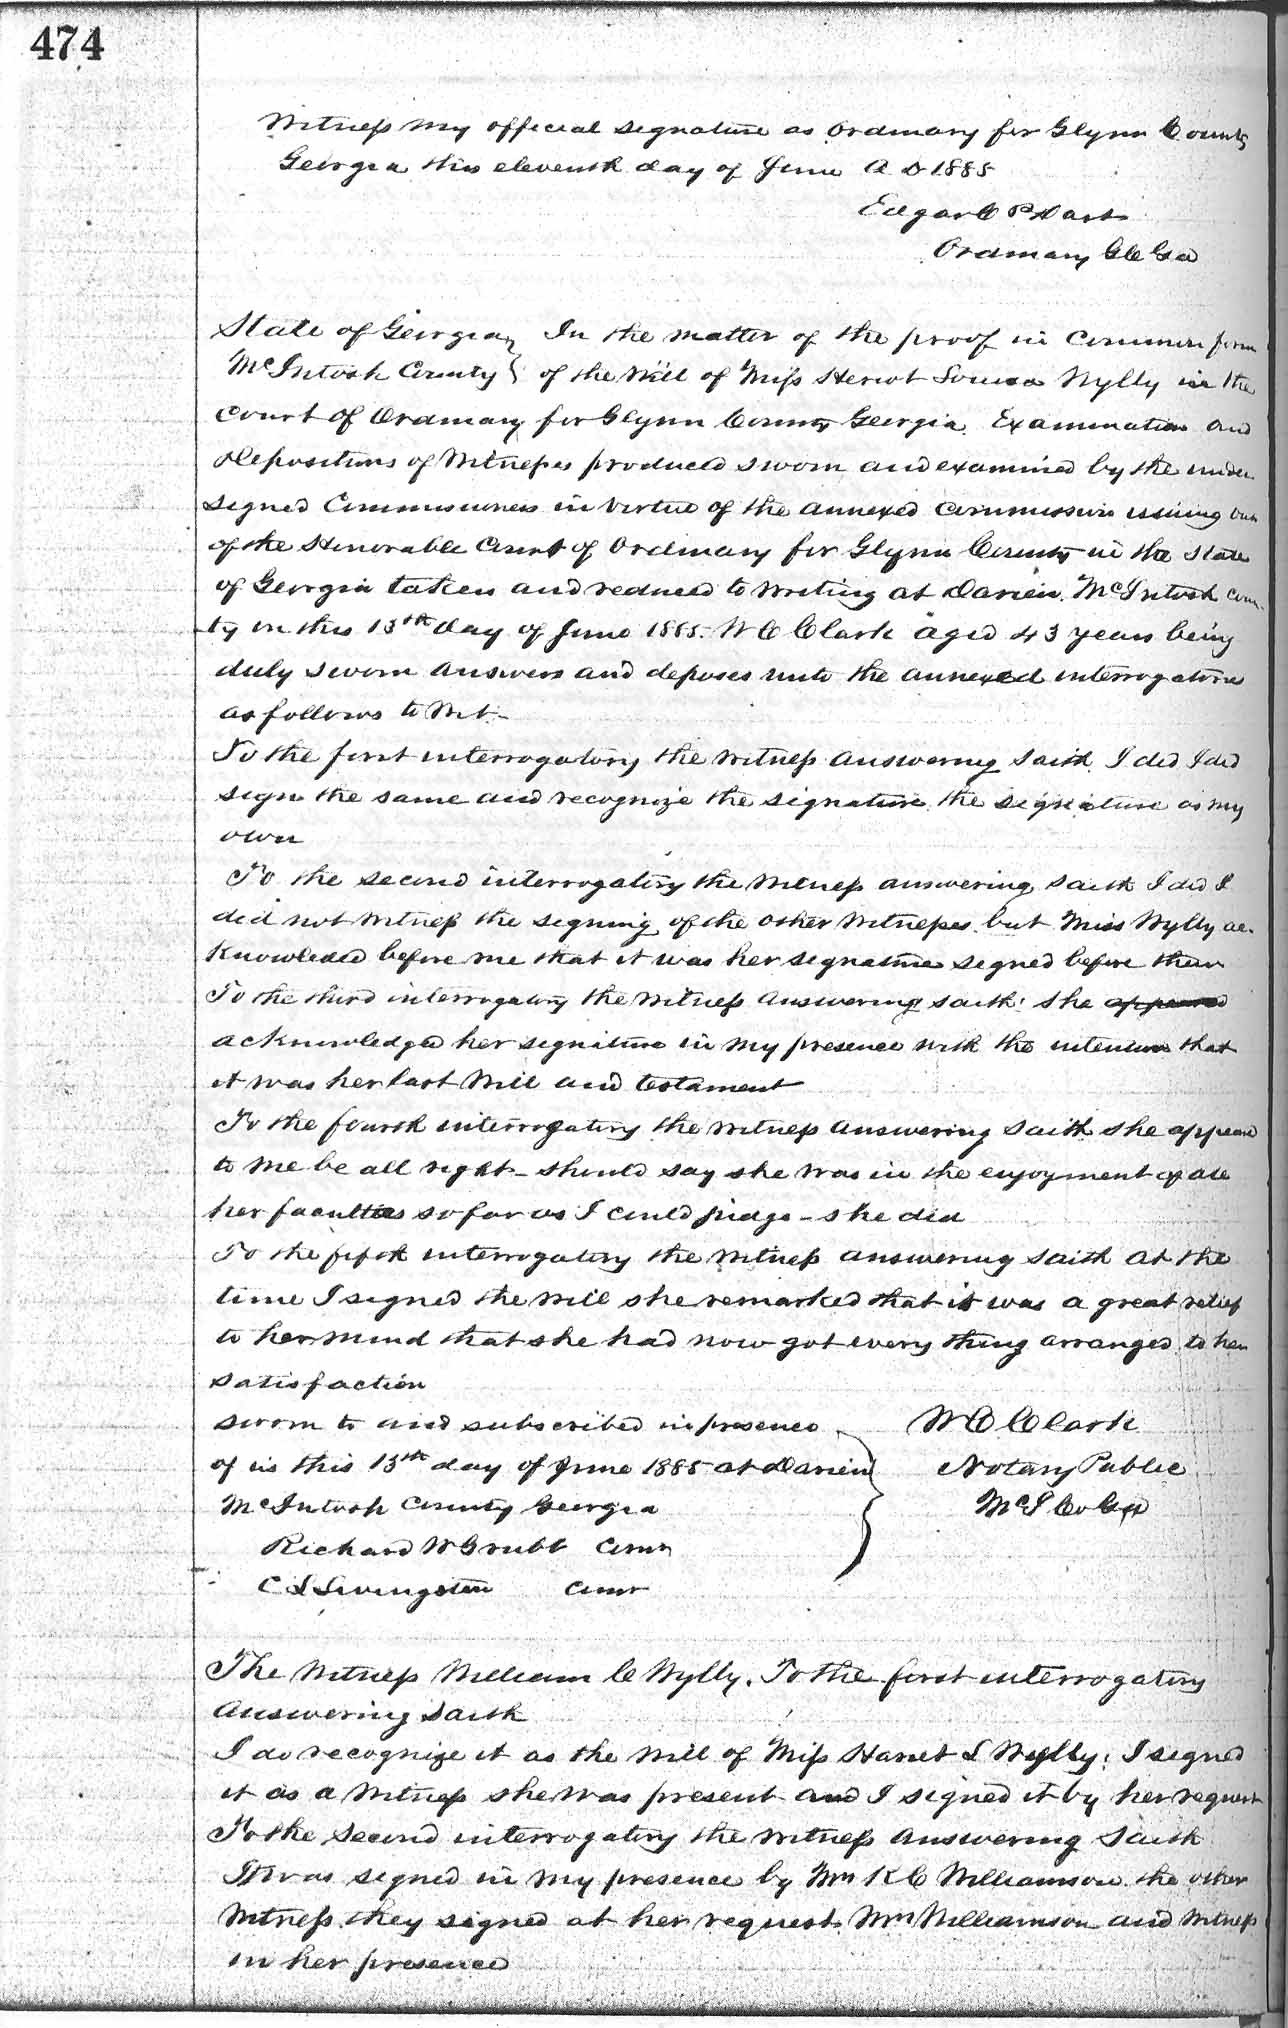 474
Witness my official signature as Ordinary for Glynn County
Georgia this eleventh day of June A D 1885
Edgar C P Dart
Ordinary G C Ga
State of Georgia } In the matter of the proof in common form
McIntosh County } of the Will of Miss Heriot Louisa Wylly in the
Court of Ordinary for Glynn County Georgia. Examination and
Depositions of Witnesses produced sworn and examined by the under
signed Commissioners in virtue of the annexed commission issuing out
of the Honorable Court of Ordinary for Glynn County in the State
of Georgia taken and reduced to writing at Darien McIntosh coun-
ty on this 13th day of June 1885. W C Clark aged 43 years being
duly sworn answers and deposes unto the annexed interrogatories
as follows to Wit-
To the first interrogatory the witness answering saith I did I did
sign the same and recognize the signature the signature as my
own
To the second interrogatory the witness answering saith I did I
did not witness the signing of the other witnesses but Miss Wylly ac-
knowledged before me that it was her signature signed before them
To the third interrogatory the witness answering saith she appeared
acknowledged her signature in my presence with the intention that
it was her last Will and testament
To the fourth interrogatory the witness answering saith she appeared
to me be all right - should say she was in the enjoyment of all
her faculties so far as I could judge - she did
To the fifth interrogatory the witness answering saith at the
time I signed the will she remarked that it was a great relief
to her mind that she had now got every thing arranged to her
satisfaction
sworn to and subscribed in presence
of us this 13th day of June 1885 at Darien
McIntosh County Georgia
Richard W Grubb Comr
C L Livingston Comr
W C Clark
Notary Public
McI Co Ga
The witness William C Wylly. To the first interrogatory
answering saith
I do recognize it as the will of Miss Harriet L Wylly: I signed
it as a witness she was present and I signed it by her request
To the second interrogatory the witness answering saith
It was signed in my presence by Mrs K C Williamson the other
witness they signed at her request Mrs Williamson and witness
in her presence